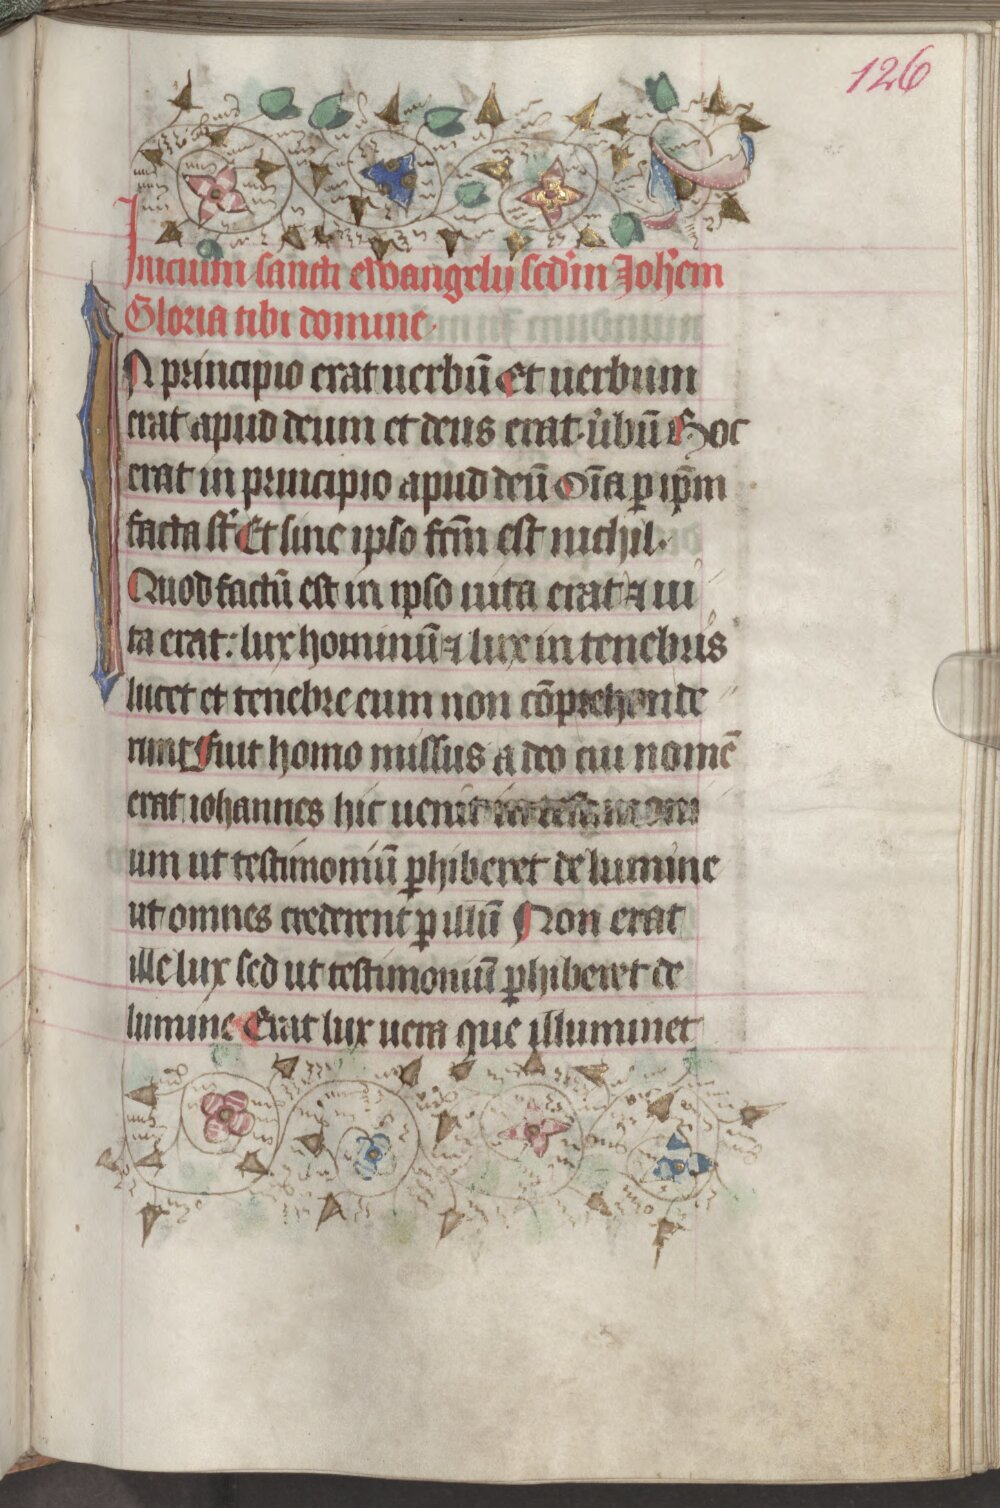 126
Inicium sancti ewangelij scdm̄ Joh̄em
Gloria tibi domine.
IN principio erat uerbū Et uerbum
erat apud deum et deus erat u̇bū Hoc
erat in principio apud deū Oīa ꝑ ip̄m
facta sṫ Et sine ipso fc̄m est nichil.
Quod factū est in ipso uita erat ⁊ ui
ta erat: lux hominū ⁊ lux in tenebris
lucet et tenebre eum non cōprehende
runt Fuit homo missus a deo cui nomē
erat iohannes hic uenit in testimoni
um ut testimoniū ꝑhiberet de lumine
ut omnes crederent ꝑ illū Non erat
ille lux sed ut testimoniū ꝑhiberet de
lumine Erat lux uera que illuminet